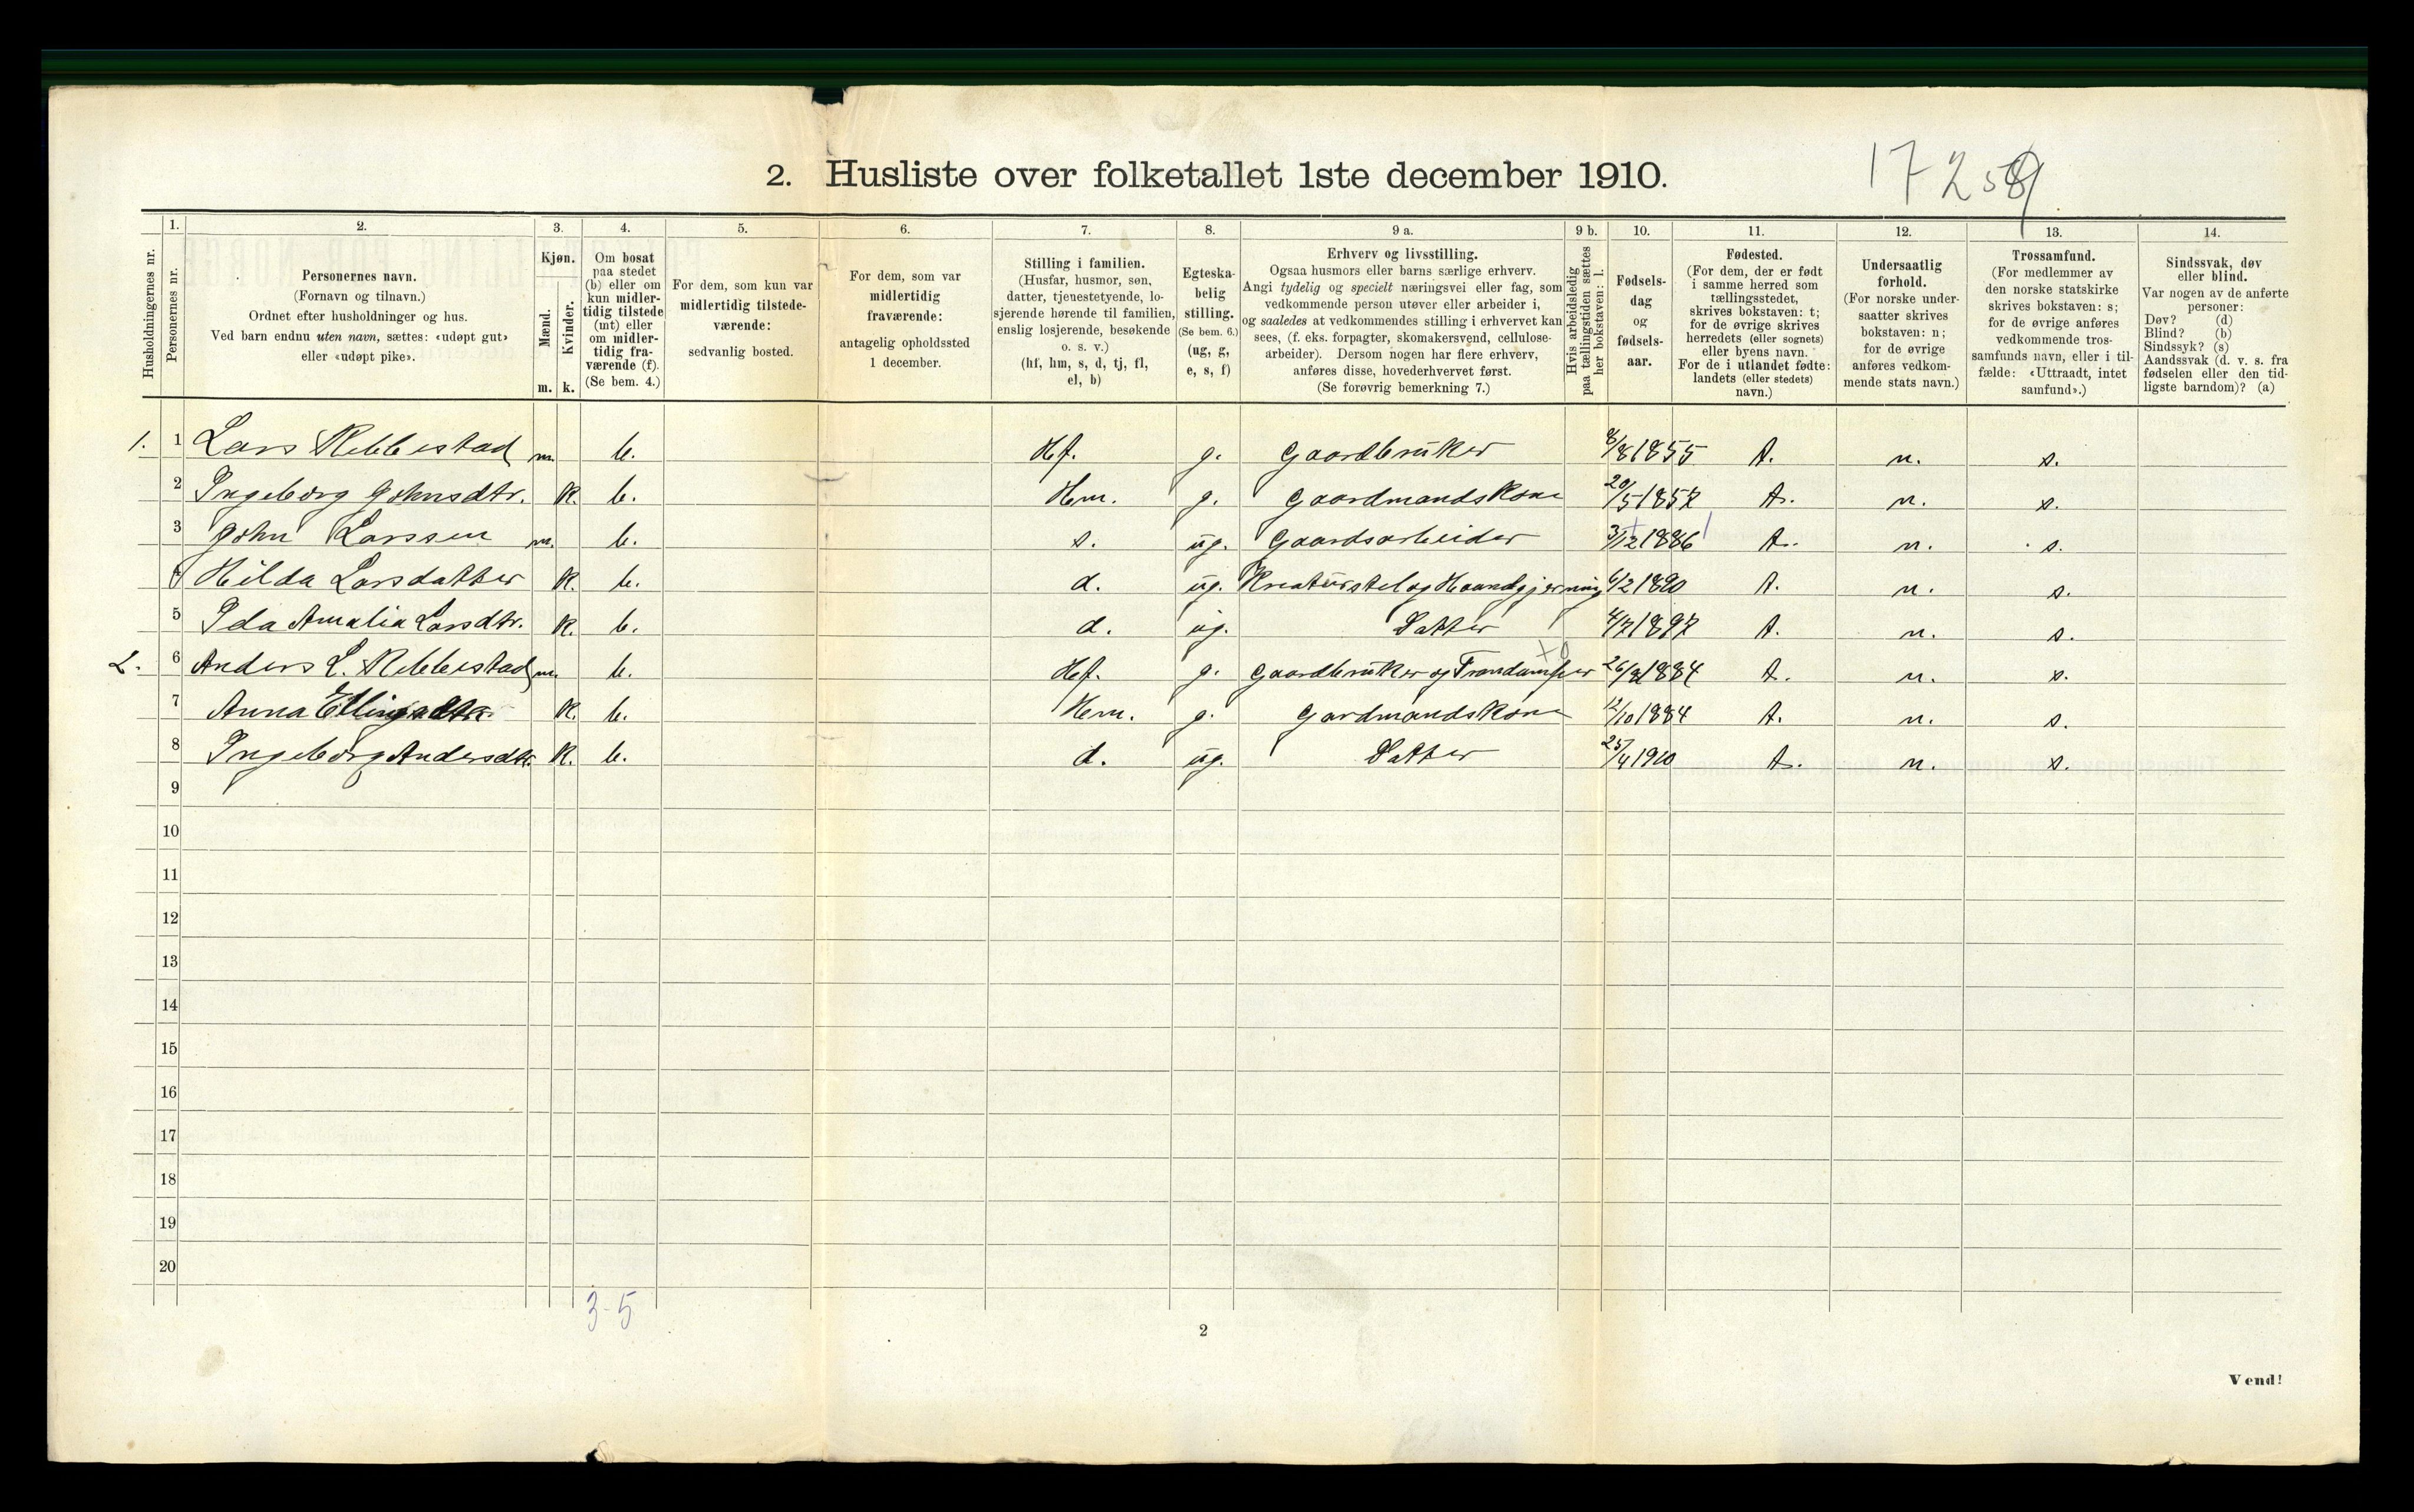 2. Husliste over folketallet 1ste december 1910.
1. 2. 3. 4. 5. 6. 7. 8. 9 a. 9 b. 10. 11. 12. 13. 14.
Husholdningernes nr.
Personernes nr.
Personernes navn.
(Fornavn og tilnavn.)
Ordnet efter husholdninger og hus.
Ved barn endnu uten navn, sættes: «udøpt gut»
eller «udøpt pike».
Kjøn.
Mænd.
Kvinder.
m. k.
Om bosat
paa stedet
(b) eller om
kun midler-
tidig tilstede
(mt) eller
om midler-
tidig fra-
værende (f).
(Se bem. 4.)
For dem, som kun var
midlertidig tilstede-
værende:
sedvanlig bosted.
For dem, som var
midlertidig
fraværende:
antagelig opholdssted
1 december.
Stilling i familien.
(Husfar, husmor, søn,
datter, tjenestetyende, lo-
sjerende hørende til familien,
enslig losjerende, besøkende
o. s. v.)
(hf, hm, s, d, tj, fl,
el, b)
Egteska-
belig
stilling.
(Se bem. 6.)
(ug, g,
e, s, f)
Erhverv og livsstilling.
Ogsaa husmors eller barns særlige erhverv.
Angi tydelig og specielt næringsvei eller fag, som
vedkommende person utøver eller arbeider i,
og saaledes at vedkommendes stilling i erhvervet kan
sees, (f. eks. forpagter, skomakersvend, cellulose-
arbeider). Dersom nogen har flere erhverv,
anføres disse, hovederhvervet først.
(Se forøvrig bemerkning 7.)
Hvis arbeidsledig
paa tællingstiden sættes
her bokstaven: l.
Fødsels-
dag
og
fødsels-
aar.
Fødested.
(For dem, der er født
i samme herred som
tællingsstedet,
skrives bokstaven: t;
for de øvrige skrives
herredets (eller sognets)
eller byens navn.
For de i utlandet fødte:
landets (eller stedets)
navn.)
Undersaatlig
forhold.
(For norske under-
saatter skrives
bokstaven: n;
for de øvrige
anføres vedkom-
mende stats navn.)
Trossamfund.
(For medlemmer av
den norske statskirke
skrives bokstaven: s;
for de øvrige anføres
vedkommende tros-
samfunds navn, eller i til-
fælde: «Uttraadt, intet
samfund».)
Sindssvak, døv
eller blind.
Var nogen av de anførte
personer:
Døv? (d)
Blind? (b)
Sindssyk? (s)
Aandssvak (d. v. s. fra
fødselen eller den tid-
ligste barndom)? (a)
1. 1 Lars Rebbestad m. b. Hf. g. Gaardbruker 8/8 1855 t. n. s.
2 Ingeborg Johnsdtr. K. b. Hm. g. Gaardmandskone 20/5 1857 t. n. s.
3 John Larssen m. b. s. ug. Gaardsarbeider 3/12 1886 t. n. s.
4 Hilda Larsdatter K. b. d. ug. Kreaturstel og Haandgjerning 6/2 1890 t. n. s.
5 Ida Amalia Larsdtr. K. b. d. ug. Datter 4/7 1897 t. n. s.
2. 6 Anders L. Rebbestad m. b. Hf. g. Gaardbruker og Trandamper 26/8 1884 t. n. s.
7 Anna K. b. Hm. g. Gardmandskone 12/10 1884 t. n. s.
8 Ingeborg Andersdtr. K. b. d. ug. Datter 25/4 1910 t. n. s.
9
10
11
12
13
14
15
16
17
18
19
20
3-5
2
Vend!